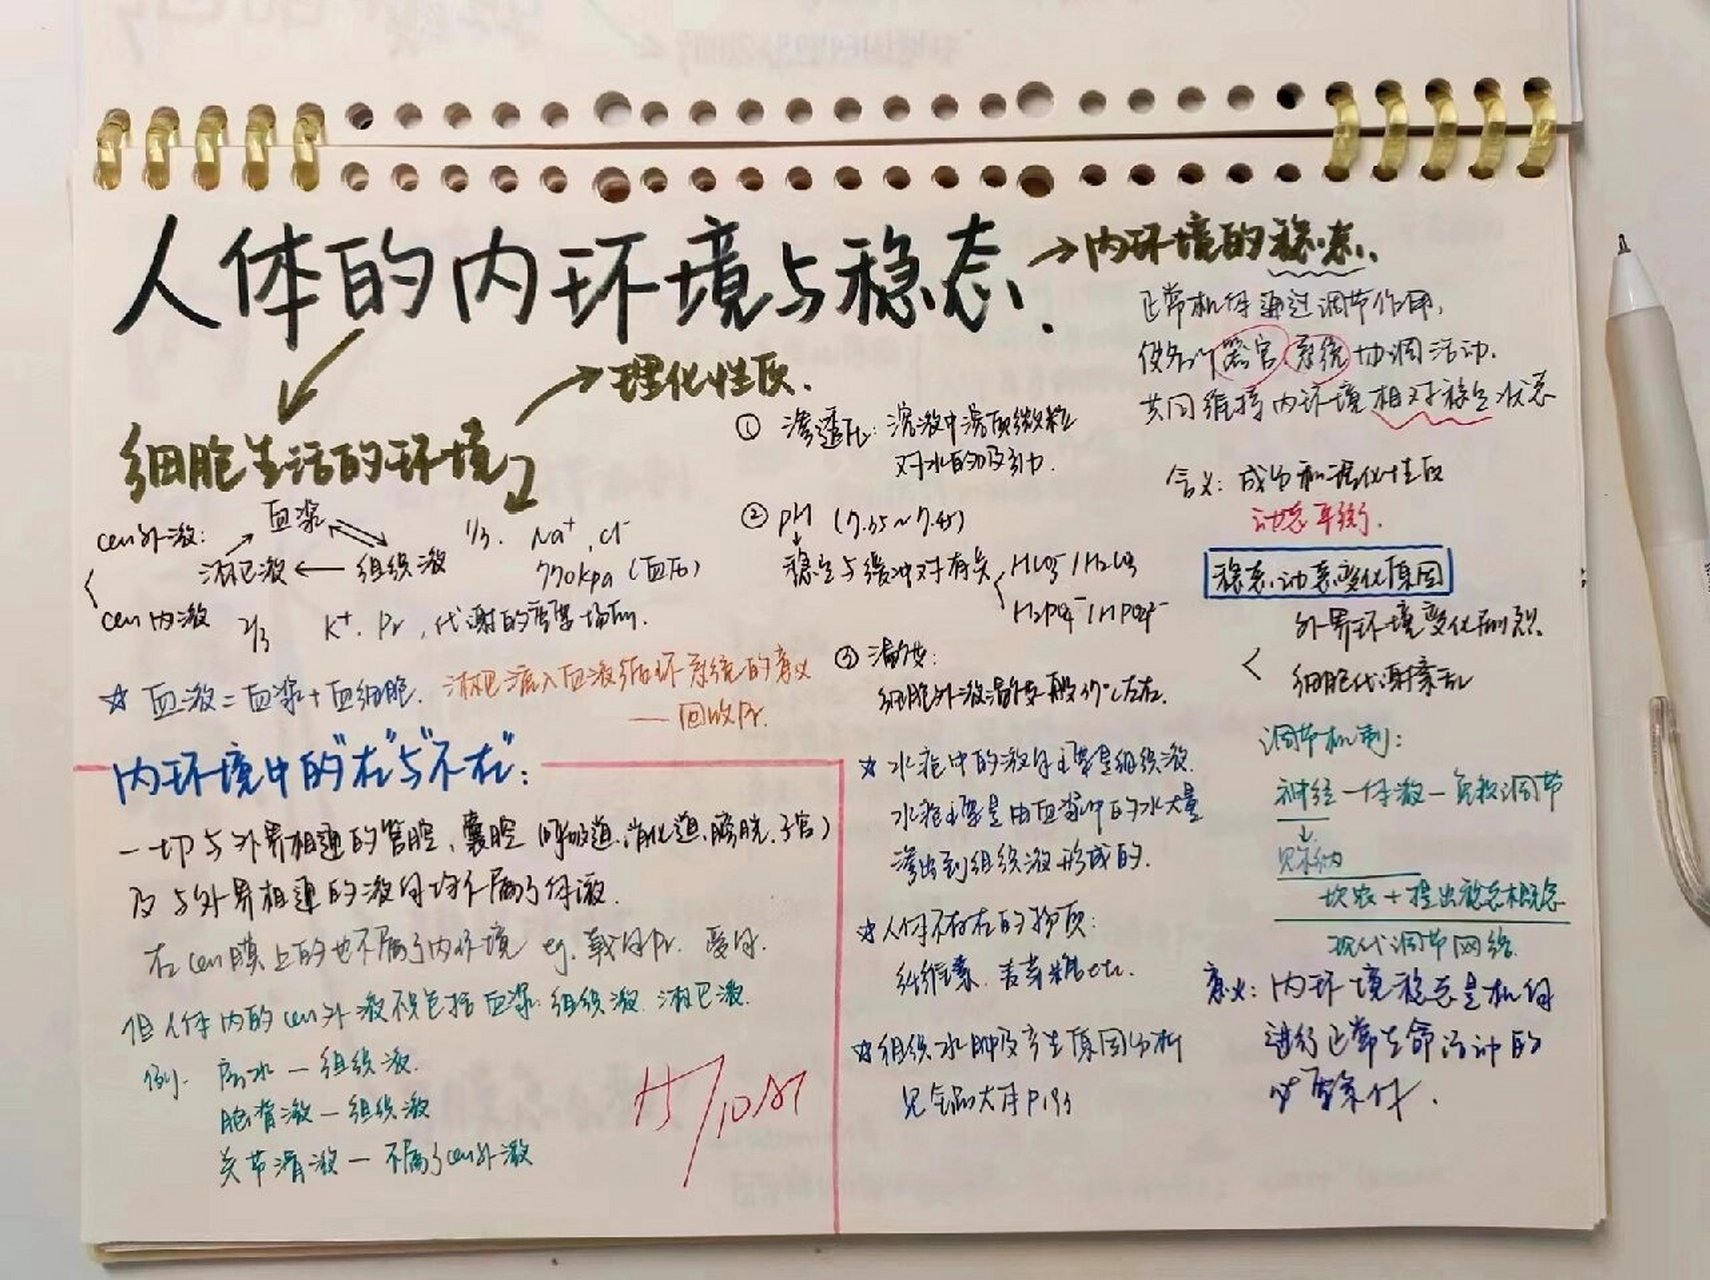 人体的内环境与稳态.
细胞生活的环境
cell外液:
血浆
淋巴液
组织液
1/3. Na⁺, Cl⁻
770kpa (血浆)
cell内液 2/3 K⁺. Pr, 代谢的重要场所.
☆ 血液=血浆+血细胞.
淋巴液流入血液循环系统的意义
——回收Pr.
内环境中的"在"与"不在":
一切与外界相通的管腔、囊腔 (呼吸道.消化道.膀胱.子宫)
及与外界相通的液体均不属于体液.
在cell膜上的也不属于内环境 eg. 载体Pr. 受体.
但人体内的cell外液不仅包括血浆.组织液.淋巴液.
例. 房水—组织液.
脑脊液—组织液
关节滑液—不属于cell外液
理化性质.
① 渗透压: 溶液中溶质微粒
对水的吸引力.
② pH (7.35~7.45)
稳定与缓冲对有关
HCO₃⁻/H₂CO₃
H₂PO₄⁻/HPO₄²⁻
③ 温度:
细胞外液温度一般37℃左右.
☆ 水疱中的液体主要是组织液.
水疱主要是由血浆中的水大量
渗出到组织液形成的.
☆ 人体不存在的物质:
纤维素. 麦芽糖etc.
☆ 组织水肿及产生原因分析
见金品大本P193
→内环境的稳态.
正常机体通过调节作用,
使各个器官.系统协调活动.
共同维持内环境相对稳定状态
含义: 成分和理化性质
动态平衡.
稳态动态变化原因
外界环境变化剧烈.
细胞代谢紊乱
调节机制:
神经—体液—免疫调节
贝尔纳
坎农→提出稳态概念
现代调节网络.
意义: 内环境稳态是机体
进行正常生命活动的
必要条件.